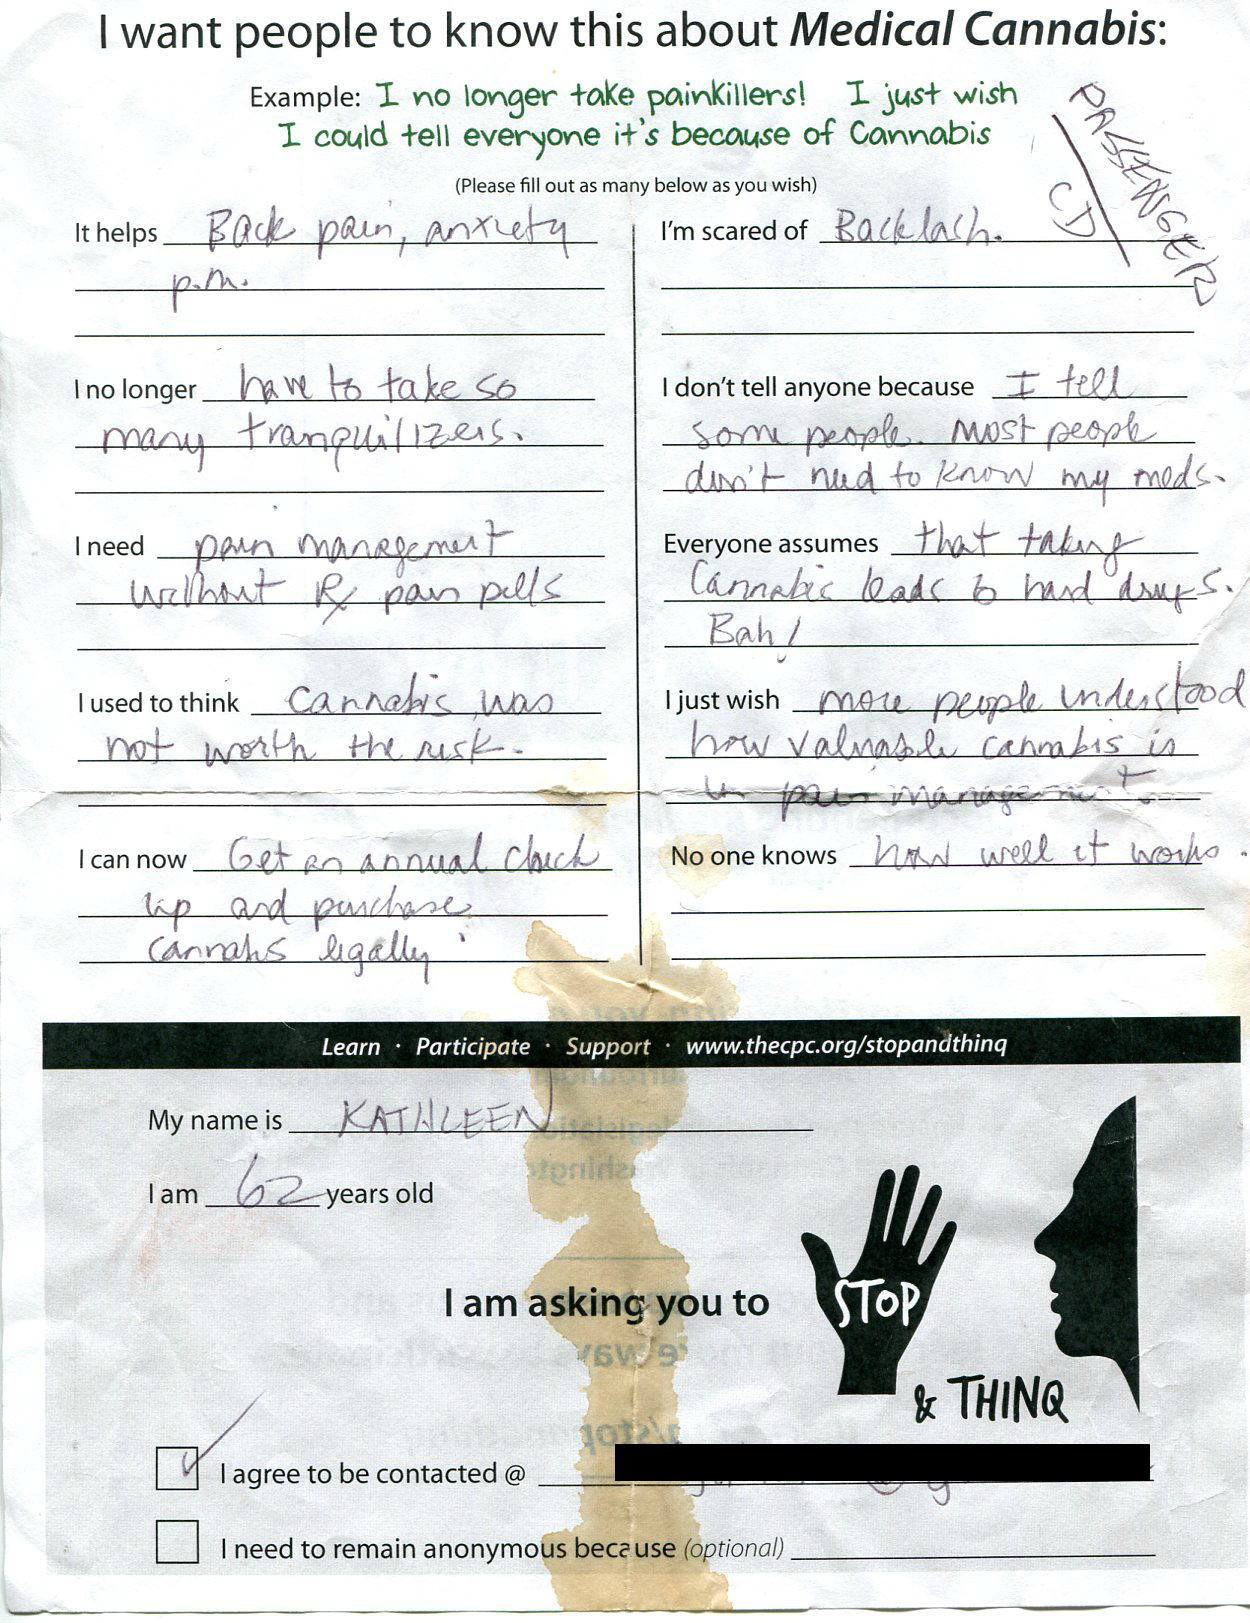 I want people to know this about Medical Cannabis:
Example: I no longer take painkillers! I just wish
I could tell everyone it's because of Cannabis
(Please fill out as many below as you wish)
PASSENGER
CD
It helps Back pain, anxiety
p.m.
I no longer have to take so
many tranquilizers.
I need pain management
without Rx pain pills
I used to think cannabis was
not worth the risk.
I can now Get an annual check
up and purchase
cannabis legally
I'm scared of Backlash.
I don't tell anyone because I tell
some people. Most people
don't need to know my meds.
Everyone assumes that taking
Cannabis leads to hard drugs.
Bah!
I just wish more people understood
how valuable cannabis is
in pain management.
No one knows how well it works.
Learn · Participate · Support · www.thecpc.org/stopandthinq
My name is KATHLEEN
I am 62 years old
I am asking you to
STOP
& THINQ
I agree to be contacted @
I need to remain anonymous because (optional)